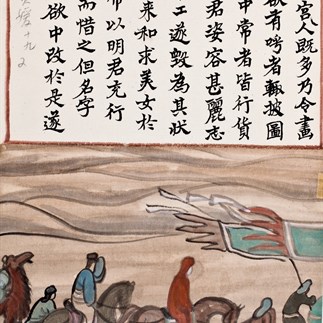 宮人既多乃令畫
欲有呼者輒披圖
中常者皆行貨
君姿容甚麗志
工遂毀為其狀
來和求美女於
帝以明君充行
而惜之但名字
欲中改於是遂
媛十九 2